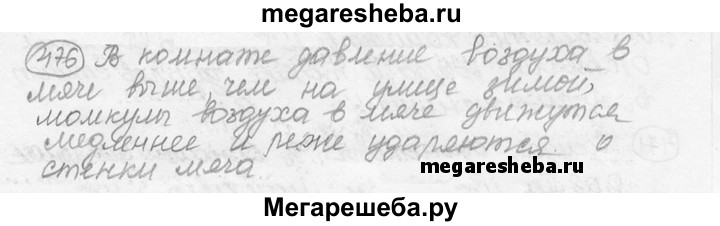 megaresheba.ru
476 В комнате давление воздуха в
мяче выше, чем на улице зимой,
молкулы воздуха в мяче движутся
медленнее и реже ударяются о
стенки мяча.
megaresheba.ru
Мегарешеба.ру